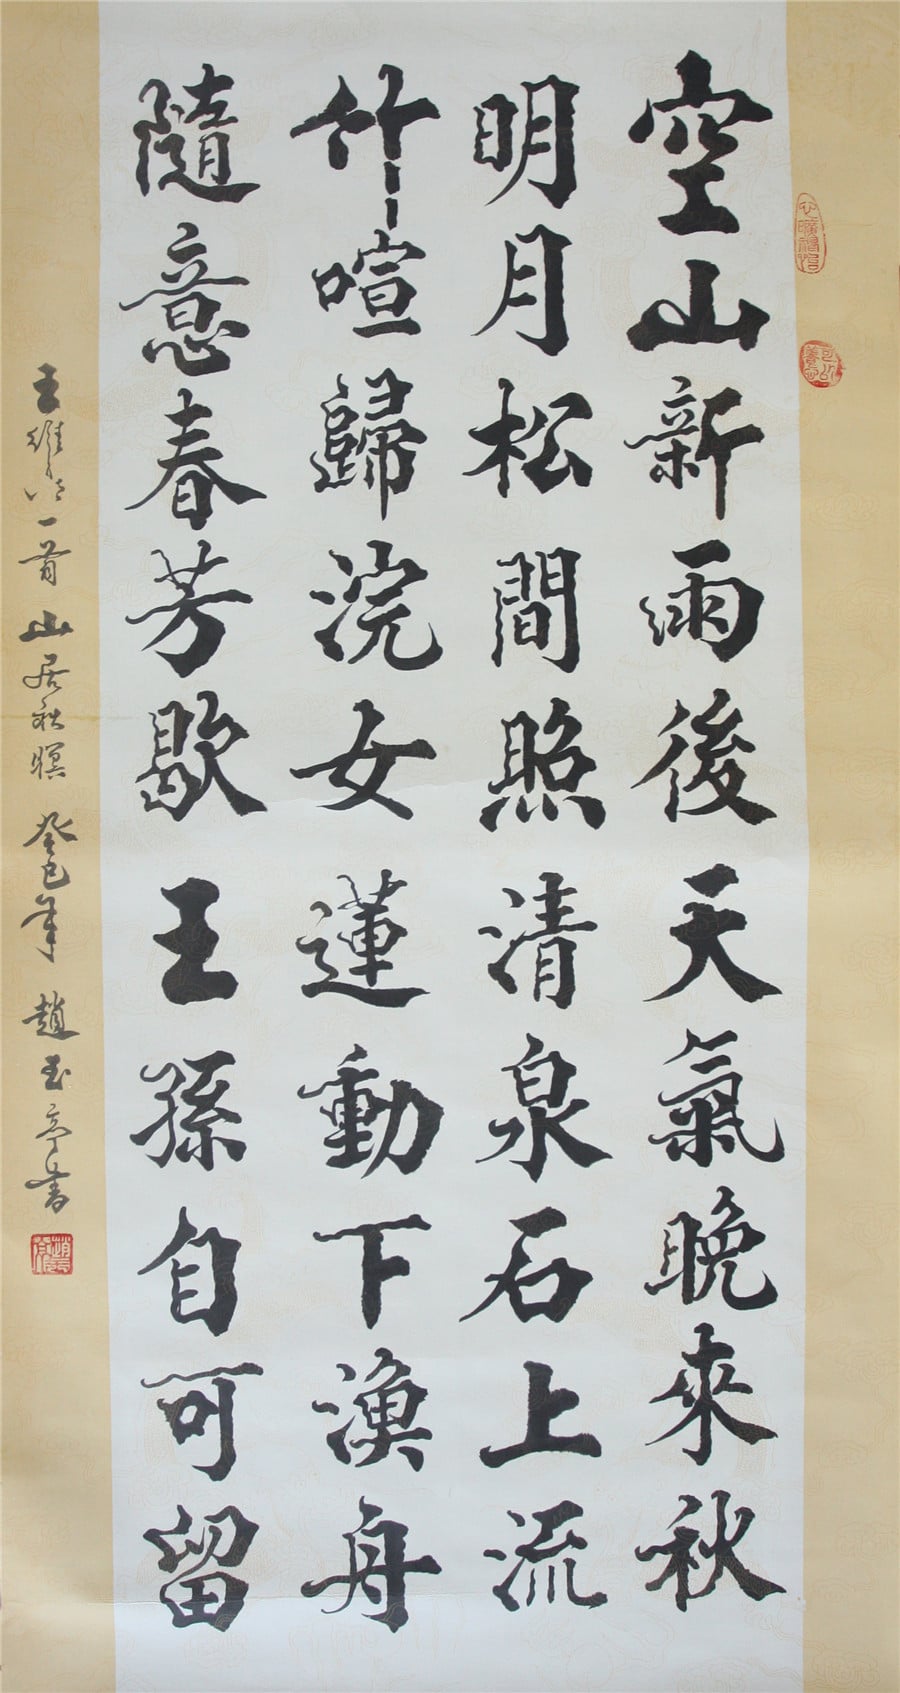 空山新雨後天氣晚來秋
明月松間照清泉石上流
竹喧歸浣女蓮動下漁舟
隨意春芳歇王孫自可留
王維詩一首 山居秋暝 癸巳年 趙玉亭書